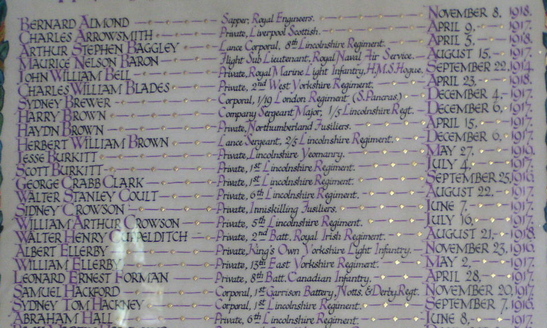 BERNARD ALMOND Sapper, Royal Engineers. NOVEMBER 8, 1918.
CHARLES ARROWSMITH Private, Liverpool Scottish. APRIL 9, 1917.
ARTHUR STEPHEN BAGGLEY Lance Corporal, 8th Lincolnshire Regiment. APRIL 3, 1918.
MAURICE NELSON BARON Flight Sub Lieutenant, Royal Naval Air Service. AUGUST 15, 1917.
JOHN WILLIAM BELL Private, Royal Marine Light Infantry, H.M.S. Hogue. SEPTEMBER 22, 1914.
CHARLES WILLIAM BLADES Private, 2nd West Yorkshire Regiment. APRIL 23, 1918.
SYDNEY BREWER Corporal, 1/19 London Regiment (S. Pancras) DECEMBER 4, 1917.
HARRY BROWN Company Sergeant Major, 1/5 Lincolnshire Regt. DECEMBER 6, 1917.
HAYDN BROWN Private, Northumberland Fusiliers. APRIL 15, 1917.
HERBERT WILLIAM BROWN Lance Sergeant, 2/5 Lincolnshire Regiment. DECEMBER 6, 1917.
JESSE BURKITT Private, Lincolnshire Yeomanry. MAY 27, 1916.
SCOTT BURKITT Private, 1st Lincolnshire Regiment. JULY 4, 1916.
GEORGE CRABB CLARK Private, 1st Lincolnshire Regiment. SEPTEMBER 25, 1916.
WALTER STANLEY COULT Private, 6th Lincolnshire Regiment. AUGUST 22, 1917.
SIDNEY CROWSON Private, Inniskilling Fusiliers. JUNE 7, 1917.
WILLIAM ARTHUR CROWSON Private, 5th Lincolnshire Regiment. JULY 16, 1917.
WALTER HENRY Private, 2nd Batt. Royal Irish Regiment. AUGUST 21, 1918.
ALBERT ELLERBY Private, King's Own Yorkshire Light Infantry. NOVEMBER 23, 1916.
WILLIAM ELLERBY Private, 13th East Yorkshire Regiment. MAY 2, 1917.
LEONARD ERNEST FORMAN Private, 8th Batt. Canadian Infantry. APRIL 28, 1917.
SAMUEL HACKFORD Corporal, 1st Garrison Battery, Notts. & Derby Regt. NOVEMBER 20, 1917.
SYDNEY TOM HACKNEY Corporal, 1st Lincolnshire Regiment. SEPTEMBER 7, 1916.
ABRAHAM HALL Private, 6th Lincolnshire Regiment. JUNE 8, 1917.